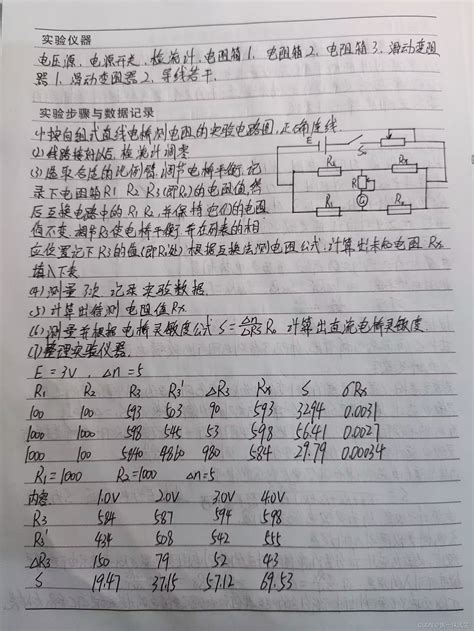 实验仪器
电压源、电源开关、检流计、电阻箱1、电阻箱2、电阻箱3、滑动变阻
器1、滑动变阻器2、导线若干.
实验步骤与数据记录
(1)按自组式直线电桥测电阻的实验电路图,正确连线.
(2)线路接好以后,检流计调零
(3)选取合适的比例臂,调节电桥平衡,记
录下电阻箱R1 R2 R3(即R0)的电阻值,然
后互换电路中的R1 R2,并保持它们的电阻
值不变,调节R3使电桥平衡并在列表的相
应位置记下R3的值(即R0) 根据互换法测电阻公式,计算出未知电阻 Rx
填入下表
(4) 测量3次,记录实验数据.
(5) 计算出待测电阻值Rx
(6) 测量并根据电桥灵敏度公式 S=Δn/ΔR3 R0 计算出直流电桥灵敏度
(7)整理实验仪器.
E = 3V , Δn = 5
R1 R2 R3 R3' ΔR3 Rx S σRx
100 100 593 503 90 593 32.94 0.0031
1000 1000 598 545 53 598 56.41 0.0027
1000 100 5840 4860 980 584 29.79 0.00034
R1 = 1000 R2 = 1000 Δn = 5
内容 1.0V 2.0V 3.0V 4.0V
R3 584 587 594 598
R3' 434 508 542 555
ΔR3 150 79 52 43
S 19.47 37.15 57.12 69.53
E
S0
R0
Rx
R
G
R1
R2